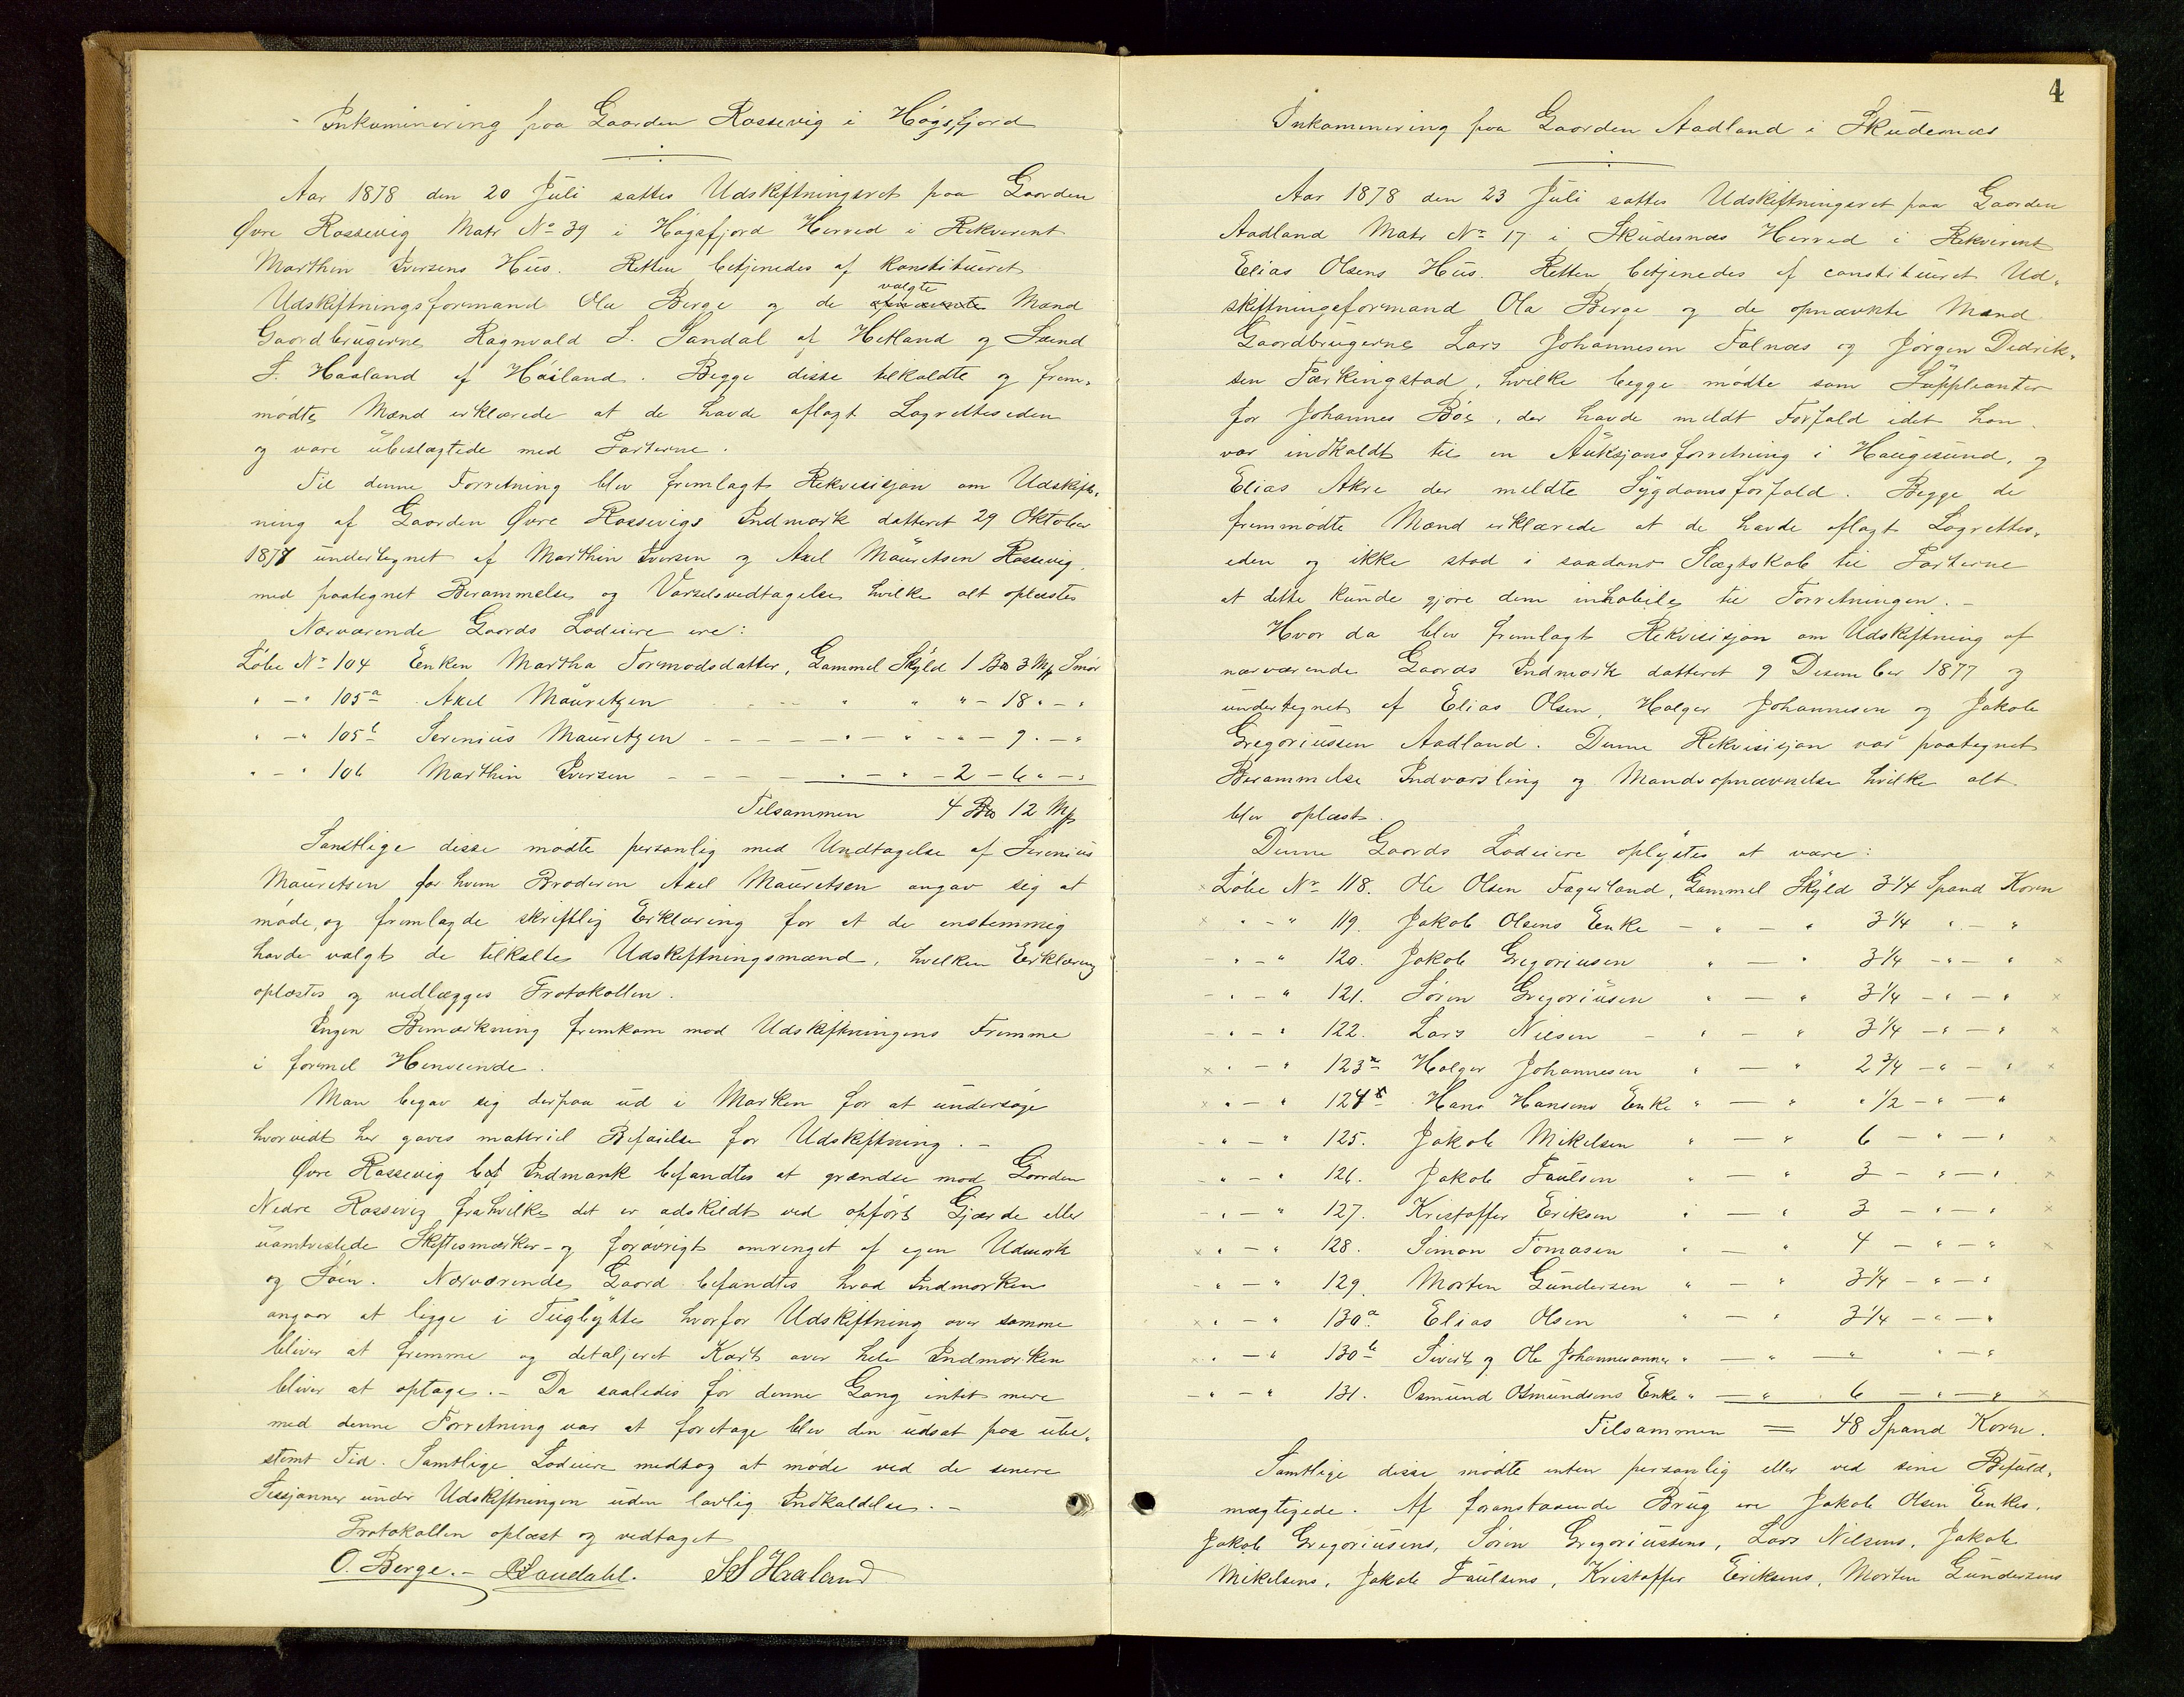 Inkaminering paa Gaarden Rossevig i Høgsfjord
Aar 1878 den 20 Juli sattes Udskiftningsret paa Gaarden
Øvre Rossevig Matr No 39 i Høgsfjord Herred i Rekvirent
Marthin Iversens Hus. Retten betjenedes af konstitueret
valgte
Udskiftningsformand Ola Berge og de opnævnte Mænd
Gaardbrugerne Ragnvald S. Sandal af Hetland og Svend
S. Haaland af Høiland. Begge disse tilkaldte og frem-
mødte Mænd erklærede at de havde aflagt Lagretteseden
og vare ubeslægtede med Parterne.
Til denne Forretning blev fremlagt Rekvisisjon om Udskift-
ning af Gaarden Øvre Rossevigs Indmark datteret 29 Oktober
1877 undertegnet af Marthin Iversen og Axel Mauretsen Rossevig,
med paategnet Berammelse og Varselsvedtagelse hvilke alt oplæstes
Nærværende Gaards Lodeiere ere:
Løbe No 104 Enken Martha Tormodsdatter, Gammel Skyld 1 Bb 3 Mp Smør
" - " 105a Axel Mauretzen " " " - 18 " - "
" - " 105b Serenius Mauretzen - - - " - " - " - 9 " - "
" - " 106 Marthin Iversen - - - - " - " - 2 - 6 " - "
Tilsammen 4 Bb 12 Mp
Samtlige disse mødte personlig med Undtagelse af Serenius
Mauretsen for hvem Broderen Axel Mauretsen angav sig at
møde, og fremlagde skriftlig Erklæring for at de enstemmig
havde valgt de tilkaldte Udskiftningsmænd, hvilken Erklæring
oplæstes og vedlægges Protokollen.
Ingen Bemærkning fremkom mod Udskiftningens Fremme
i formel Henseende.
Man begav sig derpaa ud i Marken for at undersøge
hvorvidt her gaves mattriel Beføielse for Udskiftning. -
Øvre Rossevig Indmark befandtes at grændse mod Gaarden
Nedre Rossevig fra hvilke det er adskildt ved opført Gjærde eller
uomtvistede Skiftesmærker - og forøvrigt omringet af egen Udmark
og Søen. Nærværende Gaard befandtes hvad Indmarken
angaar at ligge i Teigbytte hvorfor Udskiftning over samme
bliver at fremme og detaljeret Kart over hele Indmarken
bliver at optage. - Da saaledes for denne Gang intet mere
med denne Forretning var at foretage blev den udsat paa ube-
stemt Tid. Samtlige Lodeiere medtog at møde ved de senere
Sessjoner under Udskiftningen uden lovlig Indkaldelse. -
Protokollen oplæst og vedtaget
O. Berge. - RSandahl. SS Haaland
4
Inkaminering paa Gaarden Aadland i Skudesnæs
Aar 1878 den 23 Juli sattes Udskiftningsret paa Gaarden
Aadland Matr No 17 i Skudesnæs Herred i Rekvirent
Elias Olsens Hus. Retten betjenedes af constitueret Ud-
skiftningsformand Ola Berge og de opnævnte Mænd
Gaardbrugerne Lars Johannesen Falnæs og Jørgen Dedrik-
sen Færkingstad, hvilke begge mødte som Suppleanter
for Johannes Bøe, der havde meldt Forfald idet han
var indkaldt til en Auksjonsforretning i Haugesund, og
Elias Akre der meldte Sygdomsforfald. Begge de
fremmødte Mænd erklærede at de havde aflagt Lagrettes-
eden og ikke stod i saadant Slægtskab til Parterne
at dette kunde gjøre dem inhabile til Forretningen. -
Hvor da blev fremlagt Rekvisisjon om Udskiftning af
nærværende Gaards Indmark datteret 9 Desember 1877 og
undertegnet af Elias Olsen, Holger Johannesen og Jakob
Gregoriussen Aadland. Denne Rekvisisjon var paategnet
Berammelse Indvarsling og Mandsopnævnelse hvilke alt
blev oplæst.
Denne Gaards Lodeiere oplystes at være:
× Løbe No 118. Ole Olsen Fagerland, Gammel Skyld 3 1/4 Spand Korn
× " - " 119. Jakob Olsens Enke - " - " 3 1/4 " - "
- " - " 120. Jakob Gregoriusen " - " 3 1/4 - " - " ×
- " - " 121. Søren Gregoriusen " - " 3 1/4 - " - " ×
- " - " 122. Lars Nilsen - " - " 3 1/4 - " - " ×
× " - " 123a Holger Johannesen " - " 2 3/4 - " - " ×
× " - " 124 Hans Hansens Enke " - " " 1/2 - " - "
- " - " 125. Jakob Mikelsen " - " 6 - " - " ×
- " - " 126. Jakob Paulsen " - " 3 - " - " ×
- " - " 127. Kristoffer Eriksen " - " 3 - " - " ×
× " - " 128. Simon Tomasen " - " 4 - " - " ×
- " - " 129. Morten Gundersen " - " 3 1/4 - " - "
× " - " 130a. Elias Olsen " - " 3 1/4 - " - "
× " - " 130b Sivert og Ole Johannesønner " - " - " " - "
- " - " 131. Osmund Osmundsens Enke " - " 6 - " - " ×
Tilsammen = 48 Spand Korn.
Samtlige disse mødte enten personlig eller ved sine Befuld-
mægtigede. Af foranstaaende Brug ere Jakob Olsen Enkes,
Jakob Gregoriusens, Søren Gregoriussens, Lars Nilsens, Jakob
Mikelsens, Jakob Paulsens, Kristoffer Eriksens, Morten Gundersens